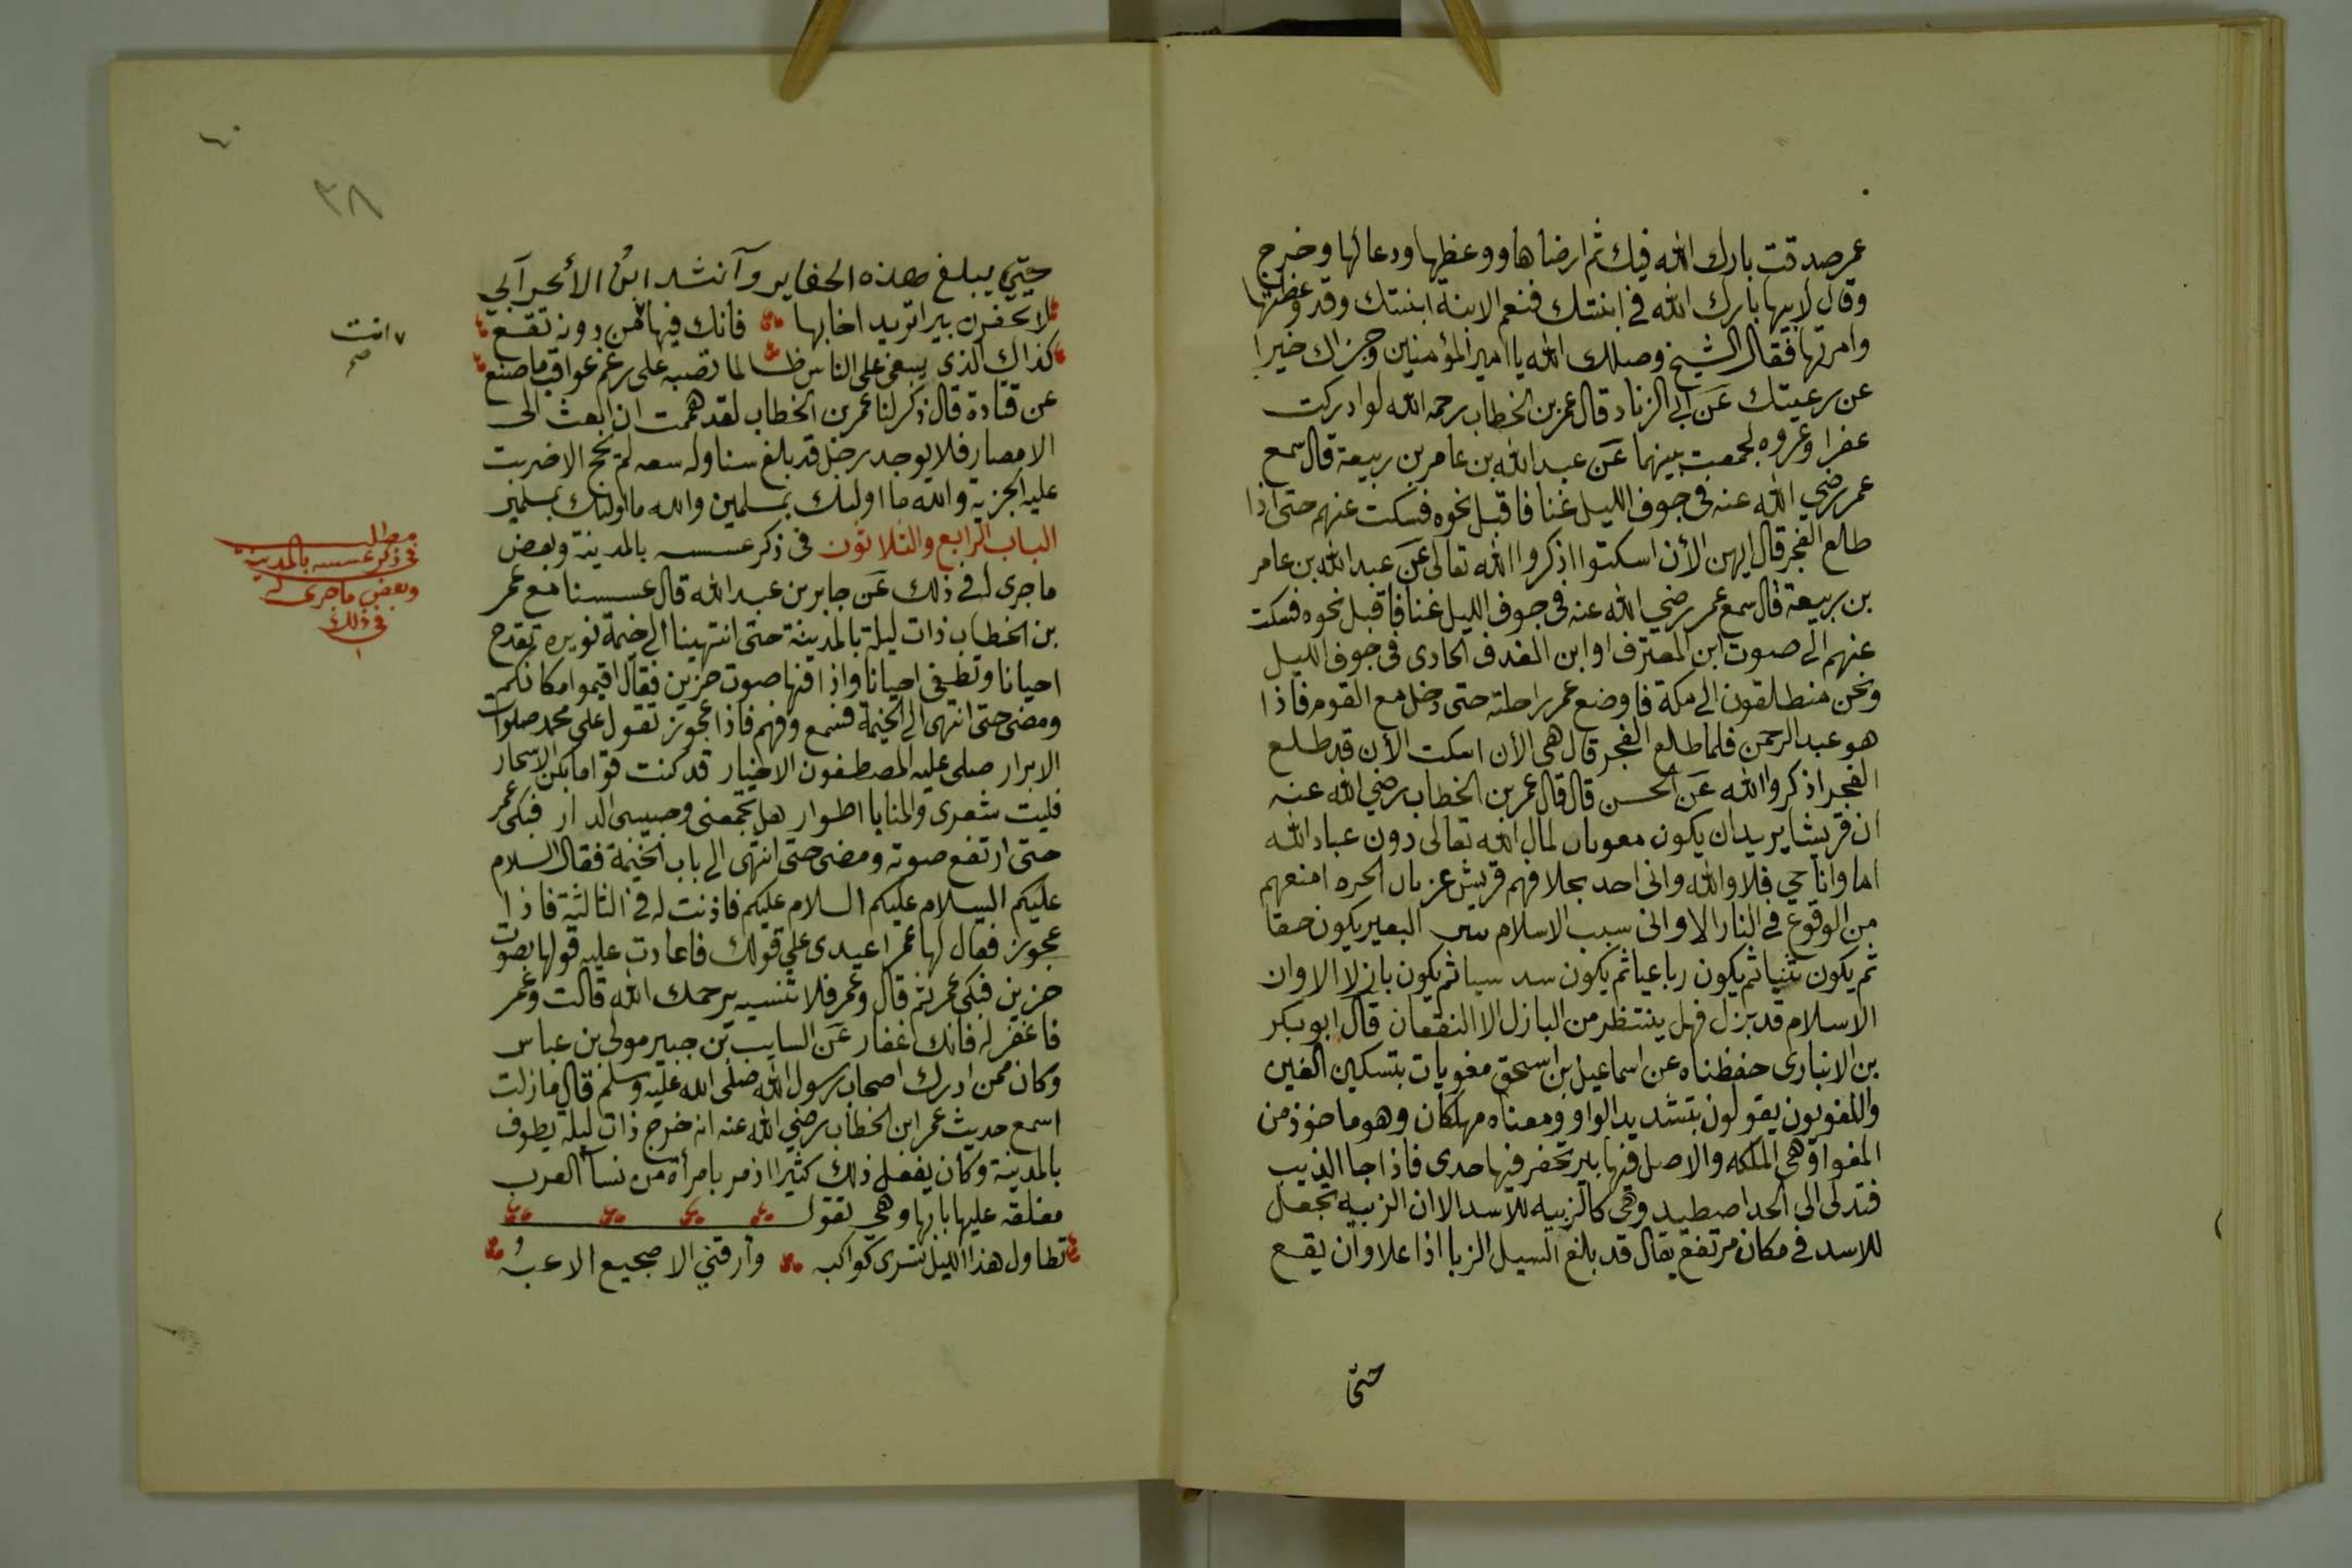 عمر صدقت بارك الله فيك ثم ارضاها ووعظها ودعا لها وخرج
وقال لابيها بارك الله في ابنتك فنعم الابنة ابنتك وقد وعظتها
وامرتها فقال الشيخ وصلك الله يا امير المؤمنين وجزاك خيرا
عن رعيتك عن ابي الزناد قال عمر بن الخطاب رحمه الله لو ادركت
عفرا وعروه لجمعت بينهما عن عبد الله بن عامر بن ربيعة قال سمع
عمر رضي الله عنه في جوف الليل غنا فاقبل نحوه فسكت عنهم حتى اذا
طلع الفجر قال ايهن الأن اسكتوا اذكروا الله تعالى عن عبد الله بن عامر
بن ربيعة قال سمع عمر رضي الله عنه في جوف الليل غنا فاقبل نحوه فسكت
عنهم الى صوت ابن المعترف او ابن الغدف الحادى في جوف الليل
ونحن منطلقون الى مكة فاوضع عمر راحلته حتى دخل مع القوم فاذا
هو عبد الرحمن فلما طلع الفجر قال هى الأن اسكت الأن قد طلع
الفجر اذكروا الله عن الحسن قال قال عمر بن الخطاب رضي الله عنه
ان قريشا يريد ان يكون معويات لمال الله تعالى دون عباد الله
اما وانا حي فلا والله وانى احد بحلاقهم قريش عن باب الحره امنعهم
من الوقوع في النار الا وانى سبب الاسلام سن البعير يكون حقا
ثم يكون ثنيا ثم يكون رباعيا ثم يكون سدسيا ثم يكون بازلا الا وان
الاسلام قد بزل فهل ينتظر من البازل الا النقصان قال ابو بكر
بن الانبارى حفظناه عن اسماعيل بن اسحق مغويات بتسكين الغين
واللغويون يقولون بتشديد الواو ومعناه مهلكان وهو ماخوذ من
المغواة وهى المهلكه والاصل فيها بير تحفر فيها جدى فاذا جا الذيب
فتدلى الى الجدا صطيد وهى كالزبيه للاسد الا ان الزبيه تجعل
للاسد في مكان مرتفع يقال قد بلغ السيل الزبا اذا علا وان يقع
حتى
٣٨
حتي يبلغ هذه الحفاير وانشد ابن الأعرابي
لا تحفرن بيرا تريد اخا بها فانك فيها من دونه تقع
انت
صح
كذاك الذى يبغى على الناس ظالما تصبه على رغم عواقب ما صنع
عن قتادة قال ذكر لنا عمر بن الخطاب لقد هممت ان ابعث الى
الامصار فلا يوجد رجل قد بلغ سنا وله سعه لم يحج الا ضربت
عليه الجزية والله ما اولئك بمسلمين والله ما اولئك بمسلمين
الباب الرابع والثلاثون في ذكر عسسه بالمدينة وبعض
مطلب
في ذكر عسسه بالمدينة
وبعض ما جرى له
في ذلك
ما جرى له في ذلك عن جابر بن عبد الله قال عسسنا مع عمر
بن الخطاب ذات ليلة بالمدينة حتى انتهينا الى خيمة نويره تقدح
احيانا وتطفى احيانا واذا فيها صوت حزين فقال اقيموا مكانكم
ومضى حتى انتهى الى الخيمة فسمع وفهم فاذا عجوز تقول على محمد صلوات
الابرار صلى عليه المصطفون الاخيار قد كنت قواما بكى الاسحار
فليت شعرى والمنايا اطوار هل تجمعنى وحبيبى الدار فبكى عمر
حتى ارتفع صوته ومضى حتى انتهى الى باب الخيمة فقال السلام
عليكم السلام عليكم السلام عليكم فاذنت له في الثالثة فاذا
عجوز فقال لها عمر اعيدى على قولك فاعادت عليه قولها بصوت
حزين فبكى عمر ثم قال وعمر فلا تنسيه يرحمك الله قالت وعمر
فاغفر له فانك غفار عن السايب بن جبير مولى بن عباس
وكان ممن ادرك اصحاب رسول الله صلى الله عليه وسلم قال ما زلت
اسمع حديث عمر ابن الخطاب رضي الله عنه انه خرج ذات ليلة يطوف
بالمدينة وكان يفعل ذلك كثيرا اذ مر بامرأة من نسا العرب
مغلقه عليها بابها وهى تقول
تطاول هذا الليل تسرى كواكبه وارقني الا ضجيع الاعبه